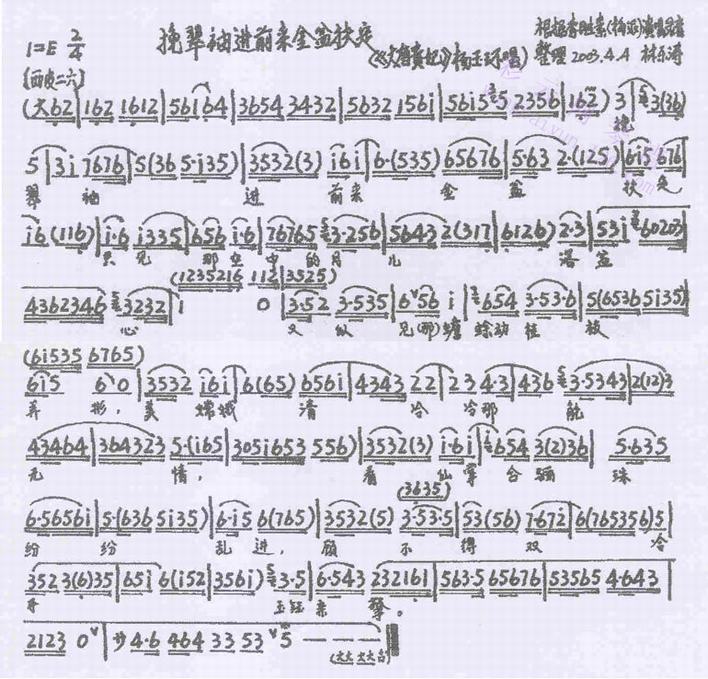 挽翠袖进前来金盆扶定
根据李胜素(梅派)演唱录音
1=E 2/4
《大唐贵妃》杨玉环唱)
整理 2003.4.4 林乐涛
[西皮二六]
(大6 2|162 1612|5616 4|3654 3432|5632 1561|5615 5 2356|162) 3 3(36)
挽
5|31 7676|5(36 5·135)|3532(3) 161|6·(535) 65676|5·63 2·(125)|615 676|
翠 袖 进 前来 金 盆 扶定
16(116)|1·6 1335|656 1·6|76765 3·256|5643 2(317|6126) 2·3|531 60203|
只见 那空中的月 儿 落盆
(1235216 112|3525)
4362346 3232|1 0|3·52 3·535|6 56 1|654 3·53·6|5(6536 5135)|
心 又似 见(那)蟾蜍动桂 枝
(61535 6765)
615 6 0|3532 161|6(65) 6561|4343 22|23 4·3|436 3·5343|2(12)3
弄 影, 美 嫦娥 清 冷 冷那 能
43464|364323 5·(165|3051653 556)|3532(3) 1·61|654 3(2)36|5·635
无 情, 看 仙掌 合骊 珠
(3635)
6·56561|5·(636 5135)|6·15 6(765)|3532(5) 3·53·5|53(56) 7·672|6(765356)5|
纷 纷 乱进, 顾 不 得 双 冷
3523(6)35|651 6(152|3561) 3·5|6·543 232161|563·5 65676|53565 4·643|
玉钰来 擎。
2123 0|サ4·6 464 33 53 5 — — —
(大大 大大台)